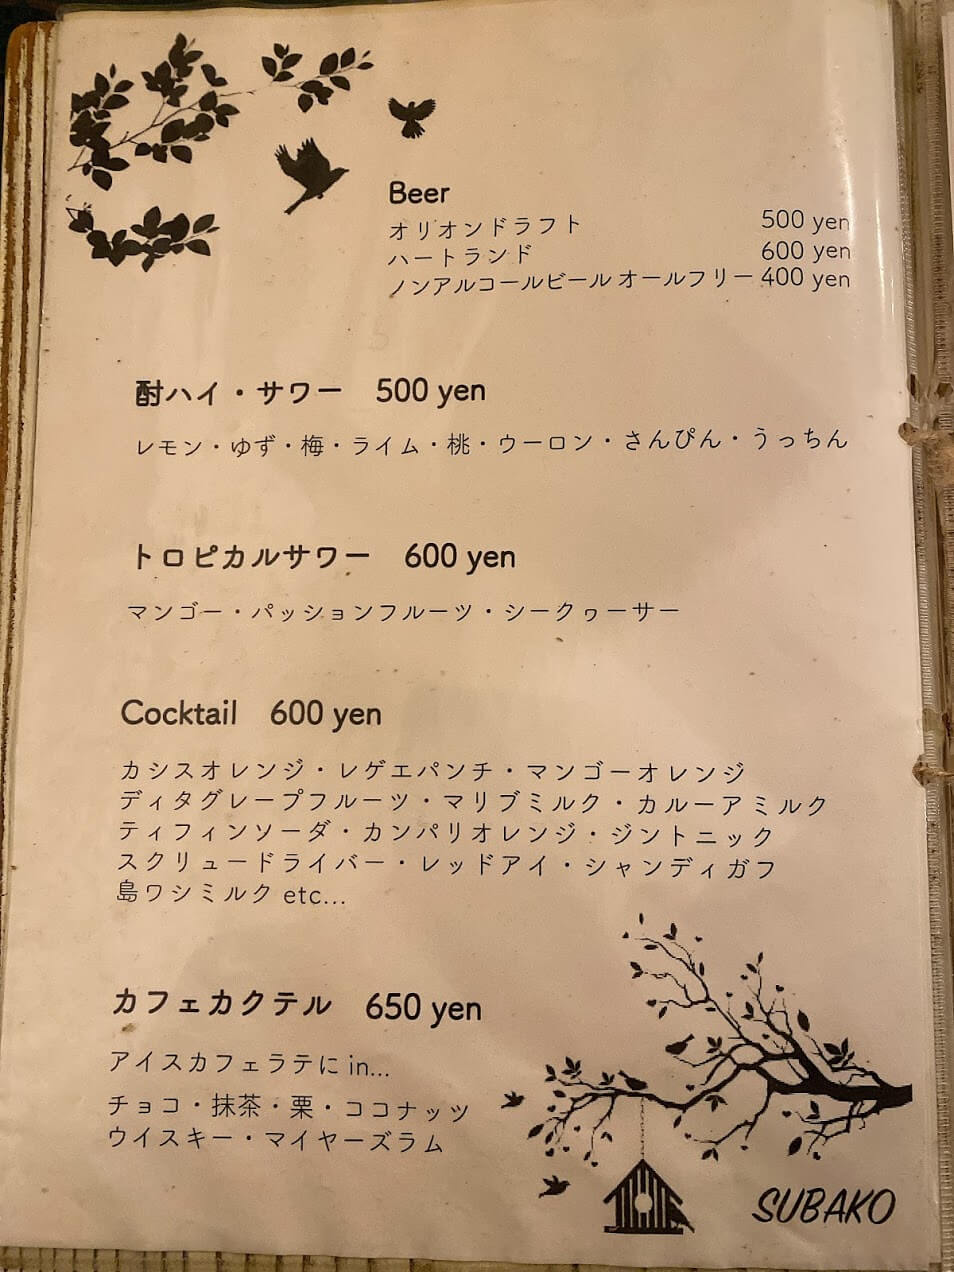 Beer
オリオンドラフト 500 yen
ハートランド 600 yen
ノンアルコールビール オールフリー 400 yen
酎ハイ・サワー 500 yen
レモン・ゆず・梅・ライム・桃・ウーロン・さんぴん・うっちん
トロピカルサワー 600 yen
マンゴー・パッションフルーツ・シークヮーサー
Cocktail 600 yen
カシスオレンジ・レゲエパンチ・マンゴーオレンジ
ディタグレープフルーツ・マリブミルク・カルーアミルク
ティフィンソーダ・カンパリオレンジ・ジントニック
スクリュードライバー・レッドアイ・シャンディガフ
島ワシミルク etc...
カフェカクテル 650 yen
アイスカフェラテに in...
チョコ・抹茶・栗・ココナッツ
ウイスキー・マイヤーズラム
SUBAKO